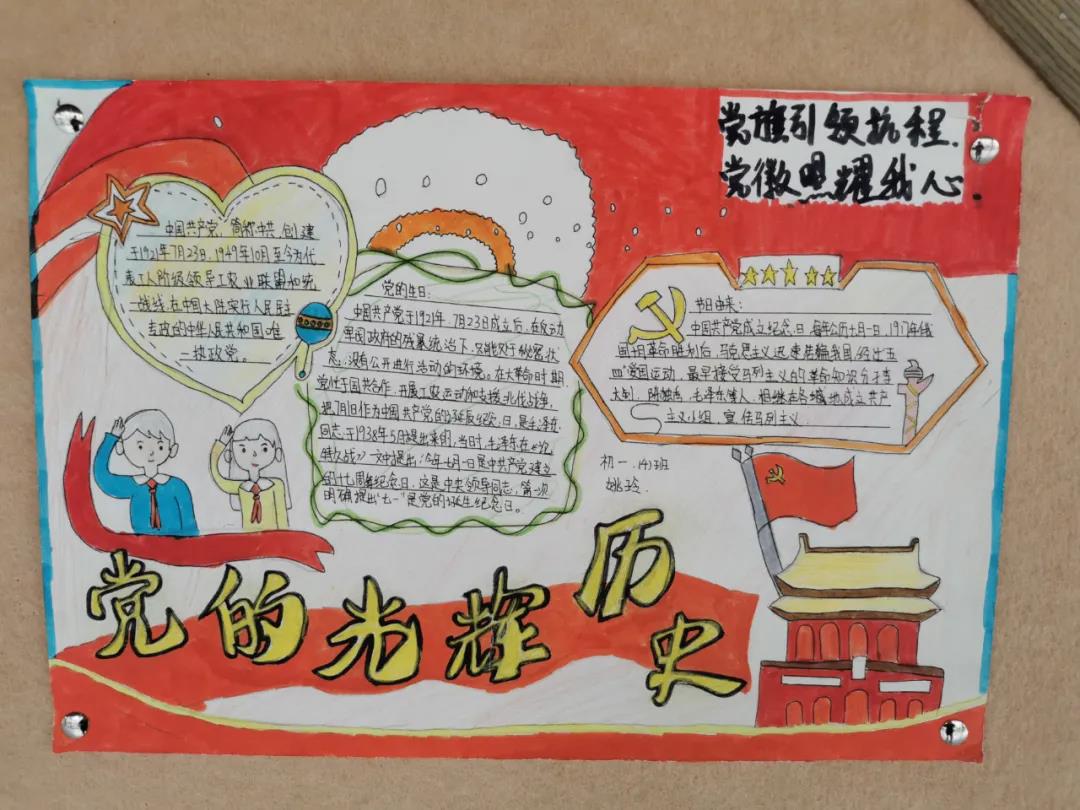 党旗引领抗程.
党徽照耀我心.
中国共产党,简称中共,创建
于1921年7月23日,1949年10月至今为代
表工人阶级领导工农业联盟和统
一战线,在中国大陆实行人民民主
专政的中华人民共和国唯
一执政党。
党的生日:
中国共产党于1921年,7月23日成立后,在反动
军阀政府的残暴统治下,只能处于秘密状
态,没有公开进行活动的环境。在大革命时期
党忙于国共合作,开展工农运动和支援北伐战争,
把7月1日作为中国共产党的诞辰纪念日,是毛泽东
同志,于1938年5月提出来的,当时,毛泽东在《论
持久战》一文中提出:“今年七月一日是中共产党建立
的十七周年纪念日,这是中央领导同志,第一次
明确提出“七一”是党的诞生纪念日。
节日由来:
中国共产党成立纪念日,每年公历七月一日,1917年俄
国十月革命胜利后,马克思主义迅速传输我国,经过五
四爱国运动,最早接受马列主义的革命知识分子李
大钊,陈独秀,毛泽东等人,相继在各城地成立共产
主义小组,宣传马列主义.
初一.(4)班
姚玲.
党的光辉历史